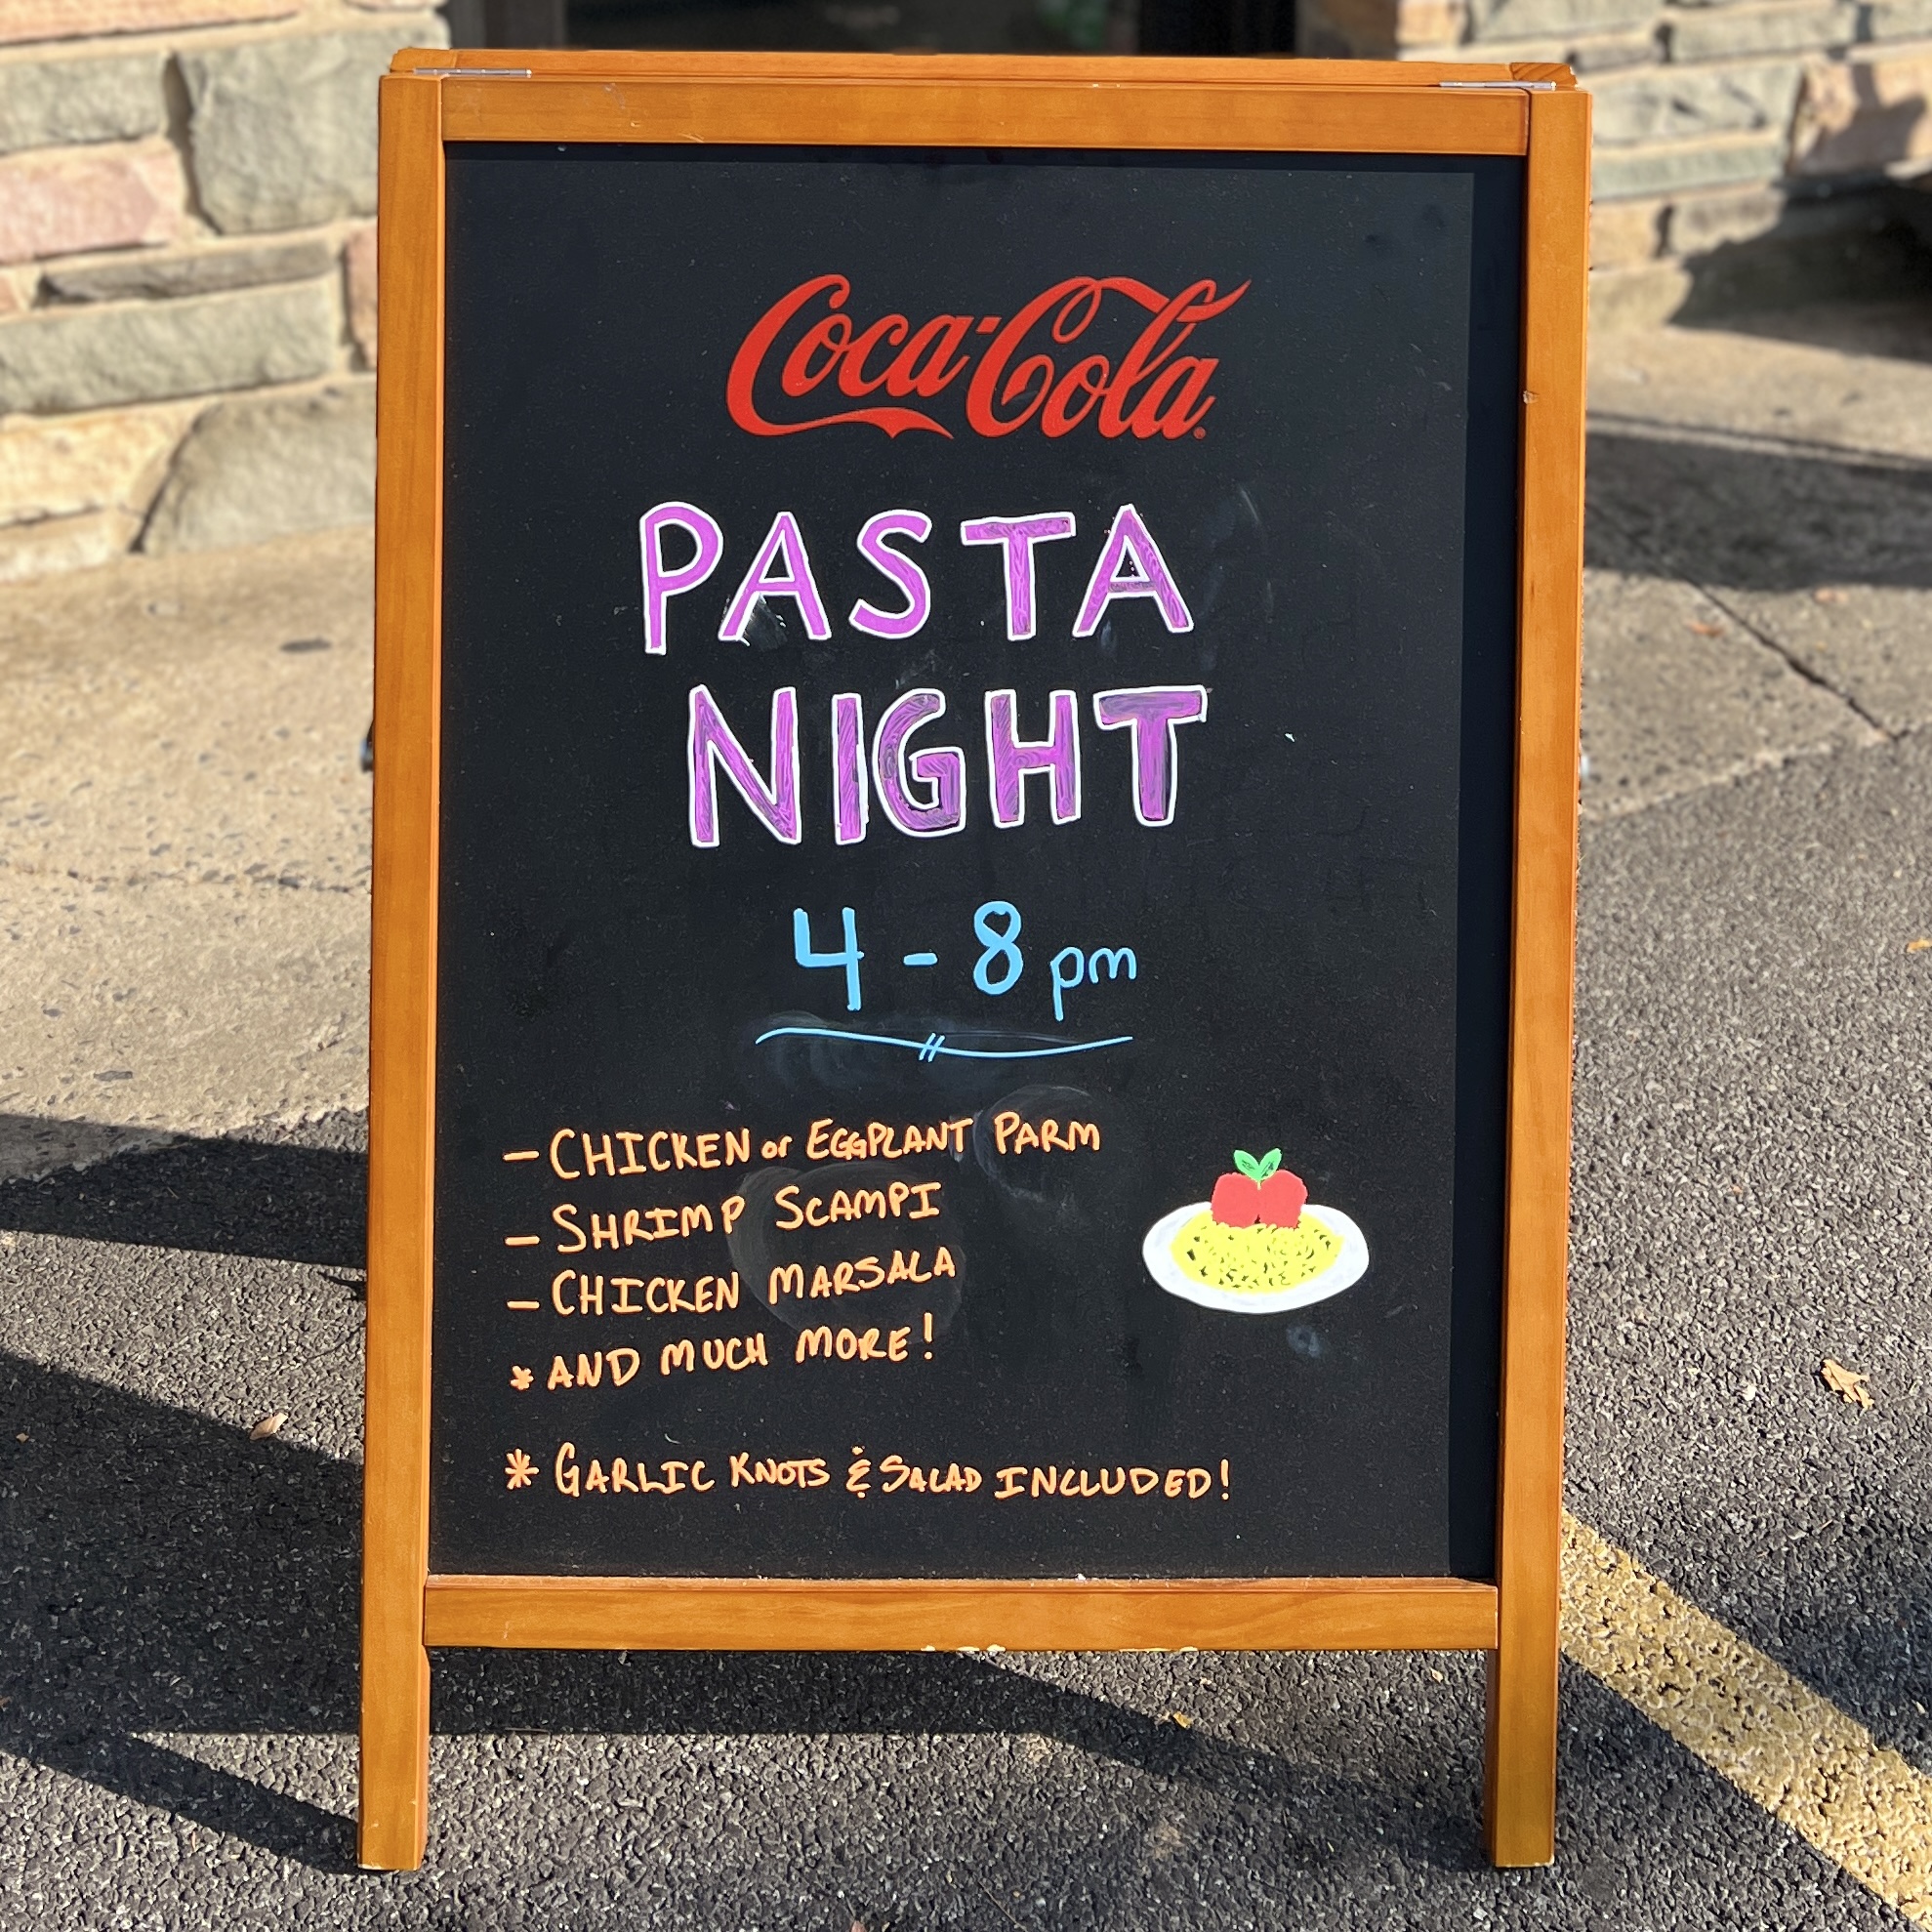 Coca-Cola
PASTA
NIGHT
4 - 8 pm
- CHICKEN or EGGPLANT PARM
- SHRIMP SCAMPI
- CHICKEN MARSALA
* AND MUCH MORE!
* GARLIC KNOTS & SALAD INCLUDED!